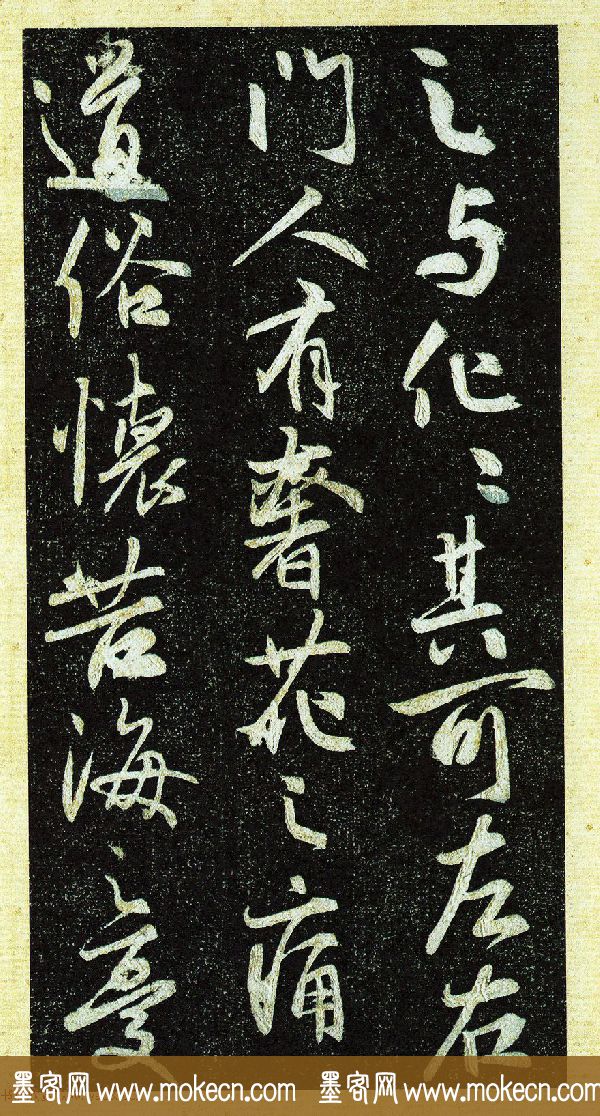 之与化〻其可左右
門人有奢花之痛
道俗懷苦海之憂
墨客网 www.mokecn.com 墨客网 www.mokecn.com